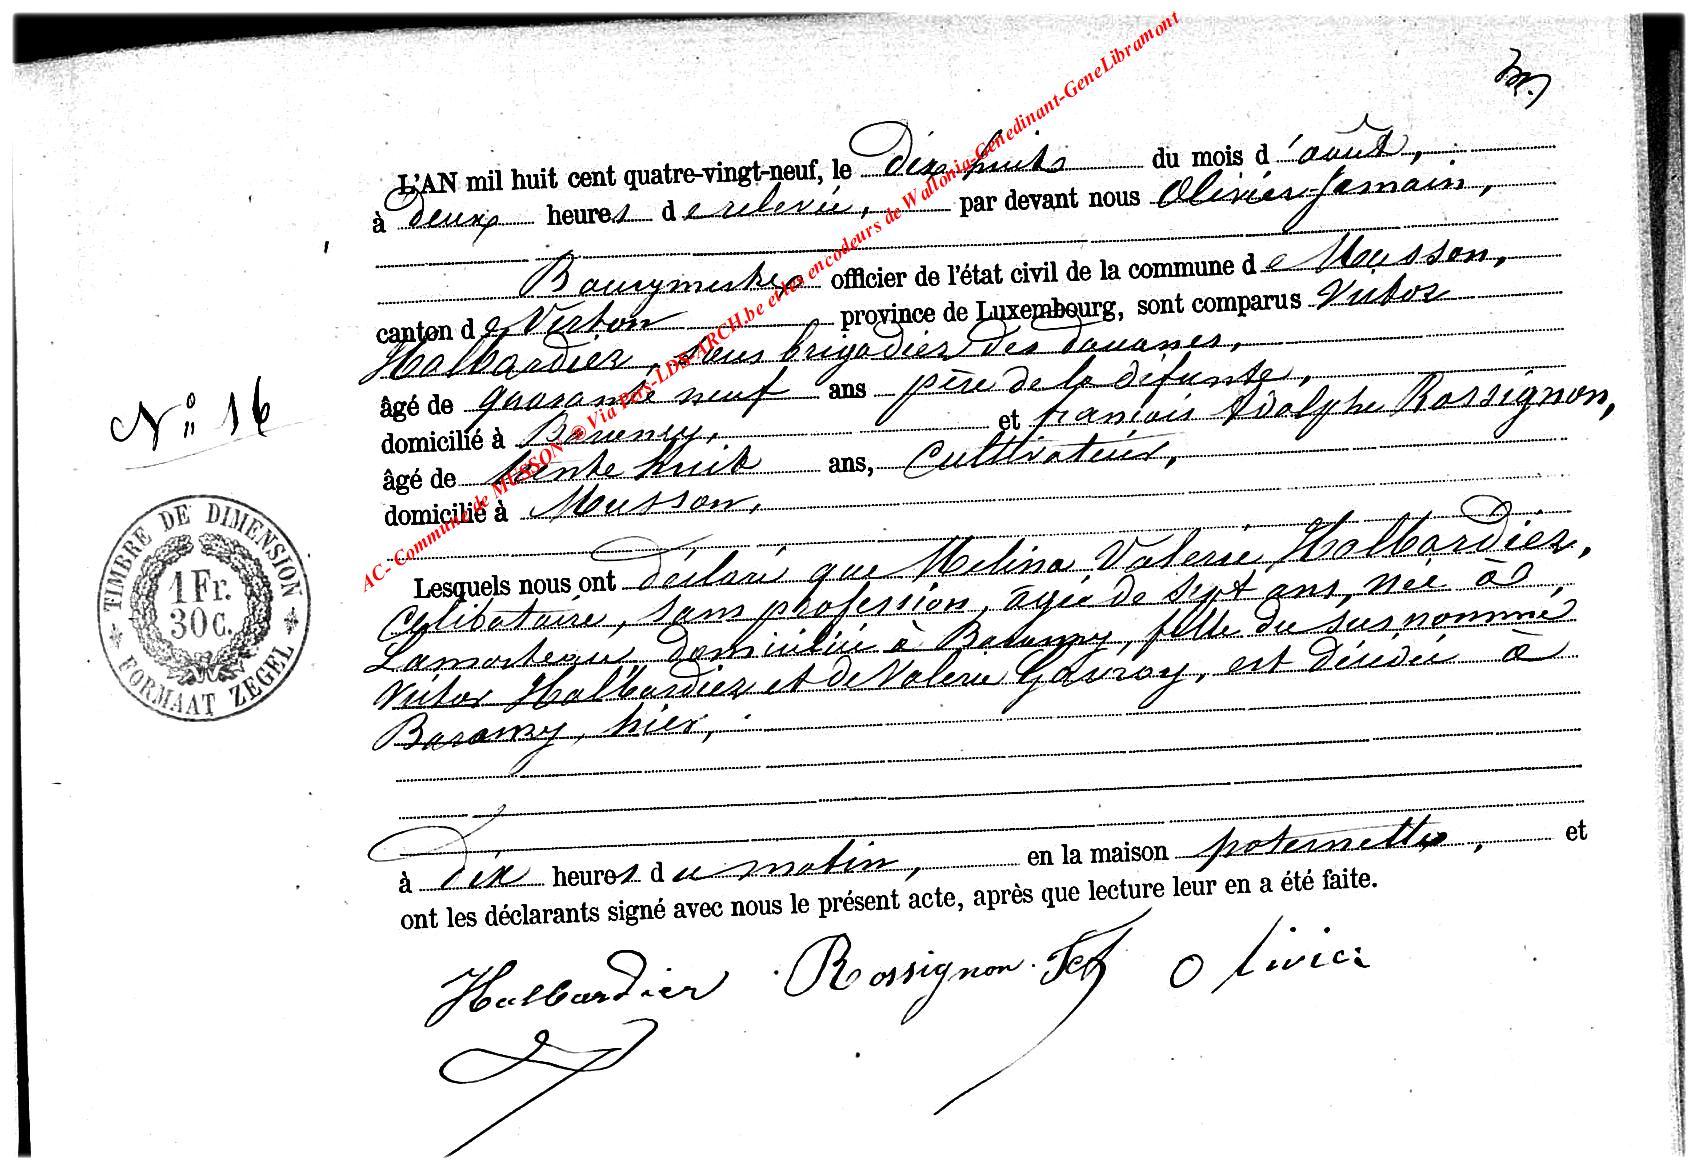 L'AN mil huit cent quatre-vingt-neuf, le dix huit du mois d'août,
à deux heures de relevée, par devant nous Olivier Jamain,
Bourgmestre officier de l'état civil de la commune de Musson,
canton de Virton province de Luxembourg, sont comparus Victor
Halbardier, sous brigadier des douanes,
âgé de quarante neuf ans père de la défunte,
domicilié à Baranzy, et françois Adolphe Rossignon,
âgé de trente huit ans, Cultivateur,
domicilié à Musson,
Lesquels nous ont déclaré que Melina Valerie Halbardier,
Célibataire, sans profession, âgée de sept ans, née à
Lamorteau, domiciliée à Baranzy, fille du sus nommé
Victor Halbardier et de Valerie Gavroy, est décédée à
Baranzy, hier,
à dix heures du matin, en la maison paternelle, et
ont les déclarants signé avec nous le présent acte, après que lecture leur en a été faite.
Halbardier Rossignon Olivier
N° 16
TIMBRE DE DIMENSION
1 Fr.
30 C.
FORMAAT ZEGEL
AC- Commune de MUSSON Via Pers-LDS-ARCH.be et les encodeurs de Wallonia-Genedinant-GeneLibramont